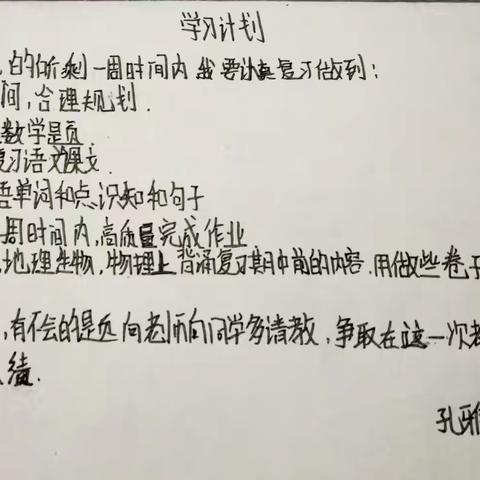 学习计划
的所剩一周时间内我要认真复习做到:
间,合理规划.
数学是页
复习语文课文.
语单词和点识知和句子
周时间内,高质量完成作业
地理生物,物理上背诵复习期中前的内容.用做些卷子
,有不会的是页向老师向同学多请教,争取在这一次考
绩.
孔雅